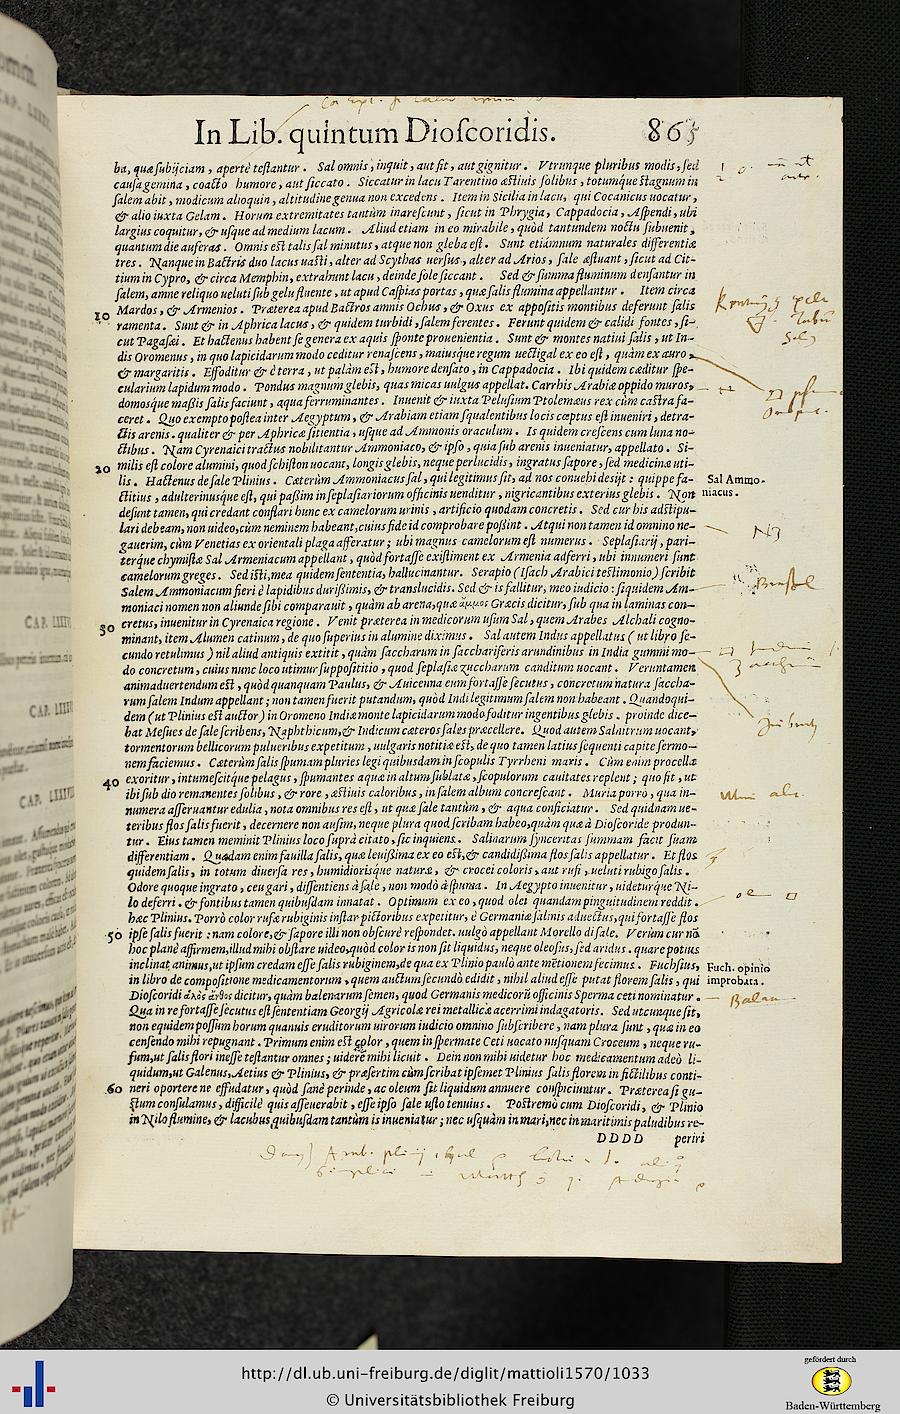 In Lib. quintum Dioſcoridis. 865
ba, quæ ſubijciam, apertè teſtantur. Sal omnis, inquit, aut fit, aut gignitur. Vtrunque pluribus modis, ſed
cauſa gemina, coacto humore, aut ſiccato. Siccatur in lacu Tarentino æſtiuis ſolibus, totumq́ue ſtagnum in
ſalem abit, modicum alioquin, altitudine genua non excedens. Item in Sicilia in lacu, qui Cocanicus uocatur,
& alio iuxta Gelam. Horum extremitates tantùm inareſcunt, ſicut in Phrygia, Cappadocia, Aſpendi, ubi
largius coquitur, & uſque ad medium lacum. Aliud etiam in eo mirabile, quòd tantundem noctu ſubuenit,
quantum die auferas. Omnis eſt talis ſal minutus, atque non gleba eſt. Sunt etiámnum naturales differentiæ
tres. Nanque in Bactris duo lacus uaſti, alter ad Scythas uerſus, alter ad Arios, ſale æſtuant, ſicut ad Cit-
tium in Cypro, & circa Memphin, extrahunt lacu, deinde ſole ſiccant. Sed & ſumma fluminum denſantur in
ſalem, amne reliquo ueluti ſub gelu fluente, ut apud Caſpias portas, quæ ſalis flumina appellantur. Item circa
10 Mardos, & Armenios. Præterea apud Bactros amnis Ochus, & Oxus ex appoſitis montibus deferunt ſalis
ramenta. Sunt & in Aphrica lacus, & quidem turbidi, ſalem ferentes. Ferunt quidem & calidi fontes, ſi-
cut Pagaſæi. Et hactenus habent ſe genera ex aquis ſponte prouenientia. Sunt & montes natiui ſalis, ut In-
dis Oromenus, in quo lapicidarum modo ceditur renaſcens, maiusq́ue regum uectigal ex eo eſt, quàm ex auro,
& margaritis. Effoditur & è terra, ut palàm eſt, humore denſato, in Cappadocia. Ibi quidem cæditur ſpe-
cularium lapidum modo. Pondus magnum glebis, quas micas uulgus appellat. Carrhis Arabiæ oppido muros,
domosq́ue maßis ſalis faciunt, aqua ferruminantes. Inuenit & iuxta Peluſium Ptolemæus rex cùm caſtra fa-
ceret. Quo exempto poſtea inter Aegyptum, & Arabiam etiam ſqualentibus locis cœptus eſt inueniri, detra-
ctis arenis. qualiter & per Aphricæ ſitientia, uſque ad Ammonis oraculum. Is quidem creſcens cum luna no-
ctibus. Nam Cyrenaici tractus nobilitantur Ammoniaco, & ipſo, quia ſub arenis inueniatur, appellato. Si-
20 milis eſt colore alumini, quod ſchiſton uocant, longis glebis, neque perlucidis, ingratus ſapore, ſed medicinæ uti-
lis. Hactenus de ſale Plinius. Cæterùm Ammoniacus ſal, qui legitimus ſit, ad nos conuehi deſijt: quippe fa-
Sal Ammo-
niacus.
ctitius, adulterinusque eſt, qui paßim in ſeplaſiariorum officinis uenditur, nigricantibus exterius glebis. Non
deſunt tamen, qui credant conflari hunc ex camelorum urinis, artificio quodam concretis. Sed cur his adſtipu-
lari debeam, non uideo, cùm neminem habeant, cuius fide id comprobare poßint. Atqui non tamen id omnino ne-
gauerim, cùm Venetias ex orientali plaga afferatur; ubi magnus camelorum eſt numerus. Seplaſiarij, pari-
terq́ue chymiſtæ Sal Armeniacum appellant, quòd fortaſſe exiſtiment ex Armenia adferri, ubi innumeri ſunt
camelorum greges. Sed iſti, mea quidem ſententia, hallucinantur. Serapio (Iſach Arabici teſtimonio) ſcribit
Salem Ammoniacum fieri è lapidibus durißimis, & translucidis. Sed & is fallitur, meo iudicio: ſiquidem Am-
moniaci nomen non aliunde ſibi comparauit, quàm ab arena, quæ ἄμμος Græcis dicitur, ſub qua in laminas con-
30 cretus, inuenitur in Cyrenaica regione. Venit præterea in medicorum uſum Sal, quem Arabes Alchali cogno-
minant, item Alumen catinum, de quo ſuperius in alumine diximus. Sal autem Indus appellatus (ut libro ſe-
cundo retulimus) nil aliud antiquis extitit, quàm ſaccharum in ſacchariferis arundinibus in India gummi mo-
do concretum, cuius nunc loco utimur ſuppoſititio, quod ſeplaſiæ zuccharum canditum uocant. Veruntamen
animaduertendum eſt, quòd quanquam Paulus, & Auicenna eum fortaſſe ſecutus, concretum natura ſaccha-
rum ſalem Indum appellant; non tamen fuerit putandum, quòd Indi legitimum ſalem non habeant. Quandoqui-
dem (ut Plinius eſt auctor) in Oromeno Indiæ monte lapicidarum modo foditur ingentibus glebis. proinde dice-
bat Meſues de ſale ſcribens, Naphthicum, & Indicum cæteros ſales præcellere. Quod autem Salnitrum uocant,
tormentorum bellicorum pulueribus expetitum, uulgaris notitiæ eſt, de quo tamen latius ſequenti capite ſermo-
nem faciemus. Cæterùm ſalis ſpumam pluries legi quibuſdam in ſcopulis Tyrrheni maris. Cùm enim procella
40 exoritur, intumeſcitq́ue pelagus, ſpumantes aquæ in altum ſublatæ, ſcopulorum cauitates replent; quo fit, ut
ibi ſub dio remanentes ſolibus, & rore, æſtiuis caloribus, in ſalem album concreſcant. Muria porrò, qua in-
numera aſſeruantur edulia, nota omnibus res eſt, ut quæ ſale tantùm, & aqua conficiatur. Sed quidnam ue-
teribus flos ſalis fuerit, decernere non auſim, neque plura quod ſcribam habeo, quàm quæ à Dioſcoride produn-
tur. Eius tamen meminit Plinius loco ſuprà citato, ſic inquiens. Salinarum ſynceritas ſummam facit ſuam
differentiam. Quædam enim fauilla ſalis, quæ leuißima ex eo eſt, & candidißima flos ſalis appellatur. Et flos
quidem ſalis, in totum diuerſa res, humidiorisq́ue naturæ, & crocei coloris, aut rufi, ueluti rubigo ſalis.
Odore quoque ingrato, ceu gari, diſſentiens à ſale, non modò à ſpuma. In Aegypto inuenitur, uideturq́ue Ni-
lo deferri. & fontibus tamen quibuſdam innatat. Optimum ex eo, quod olei quandam pinguitudinem reddit.
hæc Plinius. Porrò color rufæ rubiginis inſtar pictoribus expetitur, è Germaniæ ſalinis aduectus, qui fortaſſe flos
50 ipſe ſalis fuerit: nam colore, & ſapore illi non obſcurè reſpondet. uulgò appellant Morello di ſale. Verùm cur nō
hoc planè affirmem, illud mihi obſtare uideo, quòd color is non ſit liquidus, neque oleoſus, ſed aridus. quare potius
inclinat animus, ut ipſum credam eſſe ſalis rubiginem, de qua ex Plinio paulò ante mētionem fecimus. Fuchſius,
Fuch. opinio
improbata.
in libro de compoſitione medicamentorum, quem auctum ſecundò edidit, nihil aliud eſſe putat florem ſalis, qui
Dioſcoridi ἁλὸς ἄνθος dicitur, quàm balenarum ſemen, quod Germanis medicorū officinis Sperma ceti nominatur.
Qua in re fortaſſe ſecutus eſt ſententiam Georgij Agricolæ rei metallicæ acerrimi indagatoris. Sed utcunque ſit,
non equidem poſſum horum quanuis eruditorum uirorum iudicio omnino ſubſcribere, nam plura ſunt, quæ in eo
cenſendo mihi repugnant. Primum enim eſt color, quem in ſpermate Ceti uocato nuſquam Croceum, neque ru-
fum, ut ſalis flori ineſſe teſtantur omnes; uidere mihi licuit. Dein non mihi uidetur hoc medicamentum adeò li-
quidum, ut Galenus, Aetius & Plinius, & præſertim cùm ſcribat ipſemet Plinius ſalis florem in fictilibus conti-
60 neri oportere ne effudatur, quòd ſanè perinde, ac oleum ſit liquidum annuere conſpiciuntur. Præterea ſi gu-
ſtum conſulamus, difficilè quis aſſeuerabit, eſſe ipſo ſale uſto tenuius. Poſtremò cum Dioſcoridi, & Plinio
in Nilo flumine, & lacubus quibuſdam tantùm is inueniatur; nec uſquàm in mari, nec in maritimis paludibus re-
DDDD periri
CAP.
CAP. LXXXVII
http://dl.ub.uni-freiburg.de/diglit/mattioli1570/1033
© Universitätsbibliothek Freiburg
gefördert durch
Baden-Württemberg